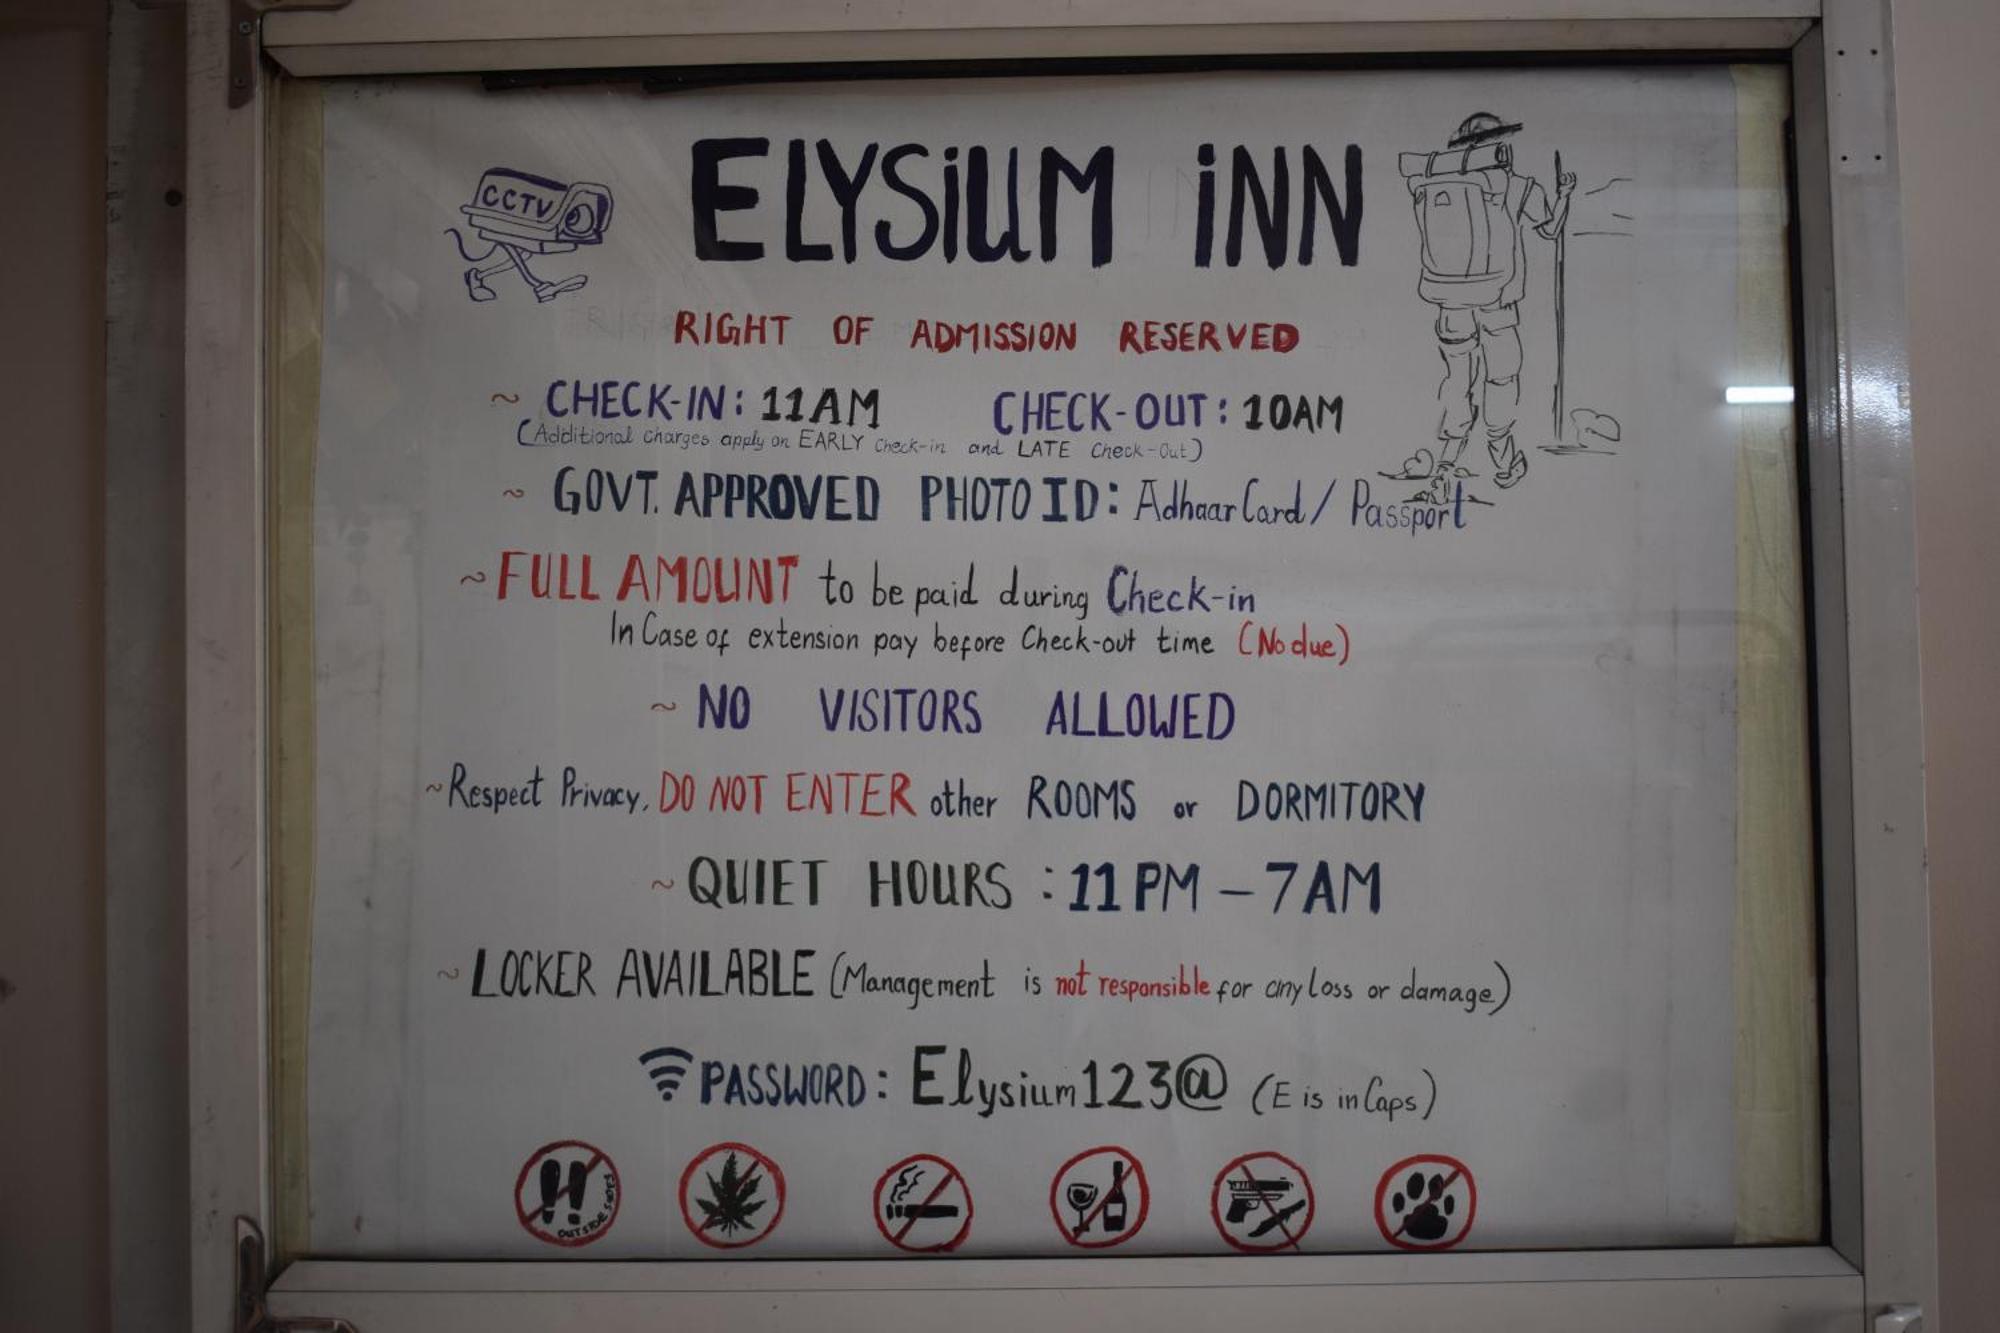 CCTV
ELYSiUM iNN
RIGHT OF ADMISSION RESERVED
~ CHECK-IN: 11AM CHECK-OUT: 10AM
(Additional charges apply on EARLY Check-in and LATE Check-Out)
~ GOVT. APPROVED PHOTO ID: Adhaar Card/ Passport
~ FULL AMOUNT to be paid during Check-in
In Case of extension pay before Check-out time (No due)
~ NO VISITORS ALLOWED
~Respect Privacy, DO NOT ENTER other ROOMS or DORMITORY
~ QUIET HOURS : 11 PM – 7 AM
~ LOCKER AVAILABLE (Management is not responsible for any loss or damage)
PASSWORD: Elysium123@ (E is in Caps)
OUTSIDE SHOES